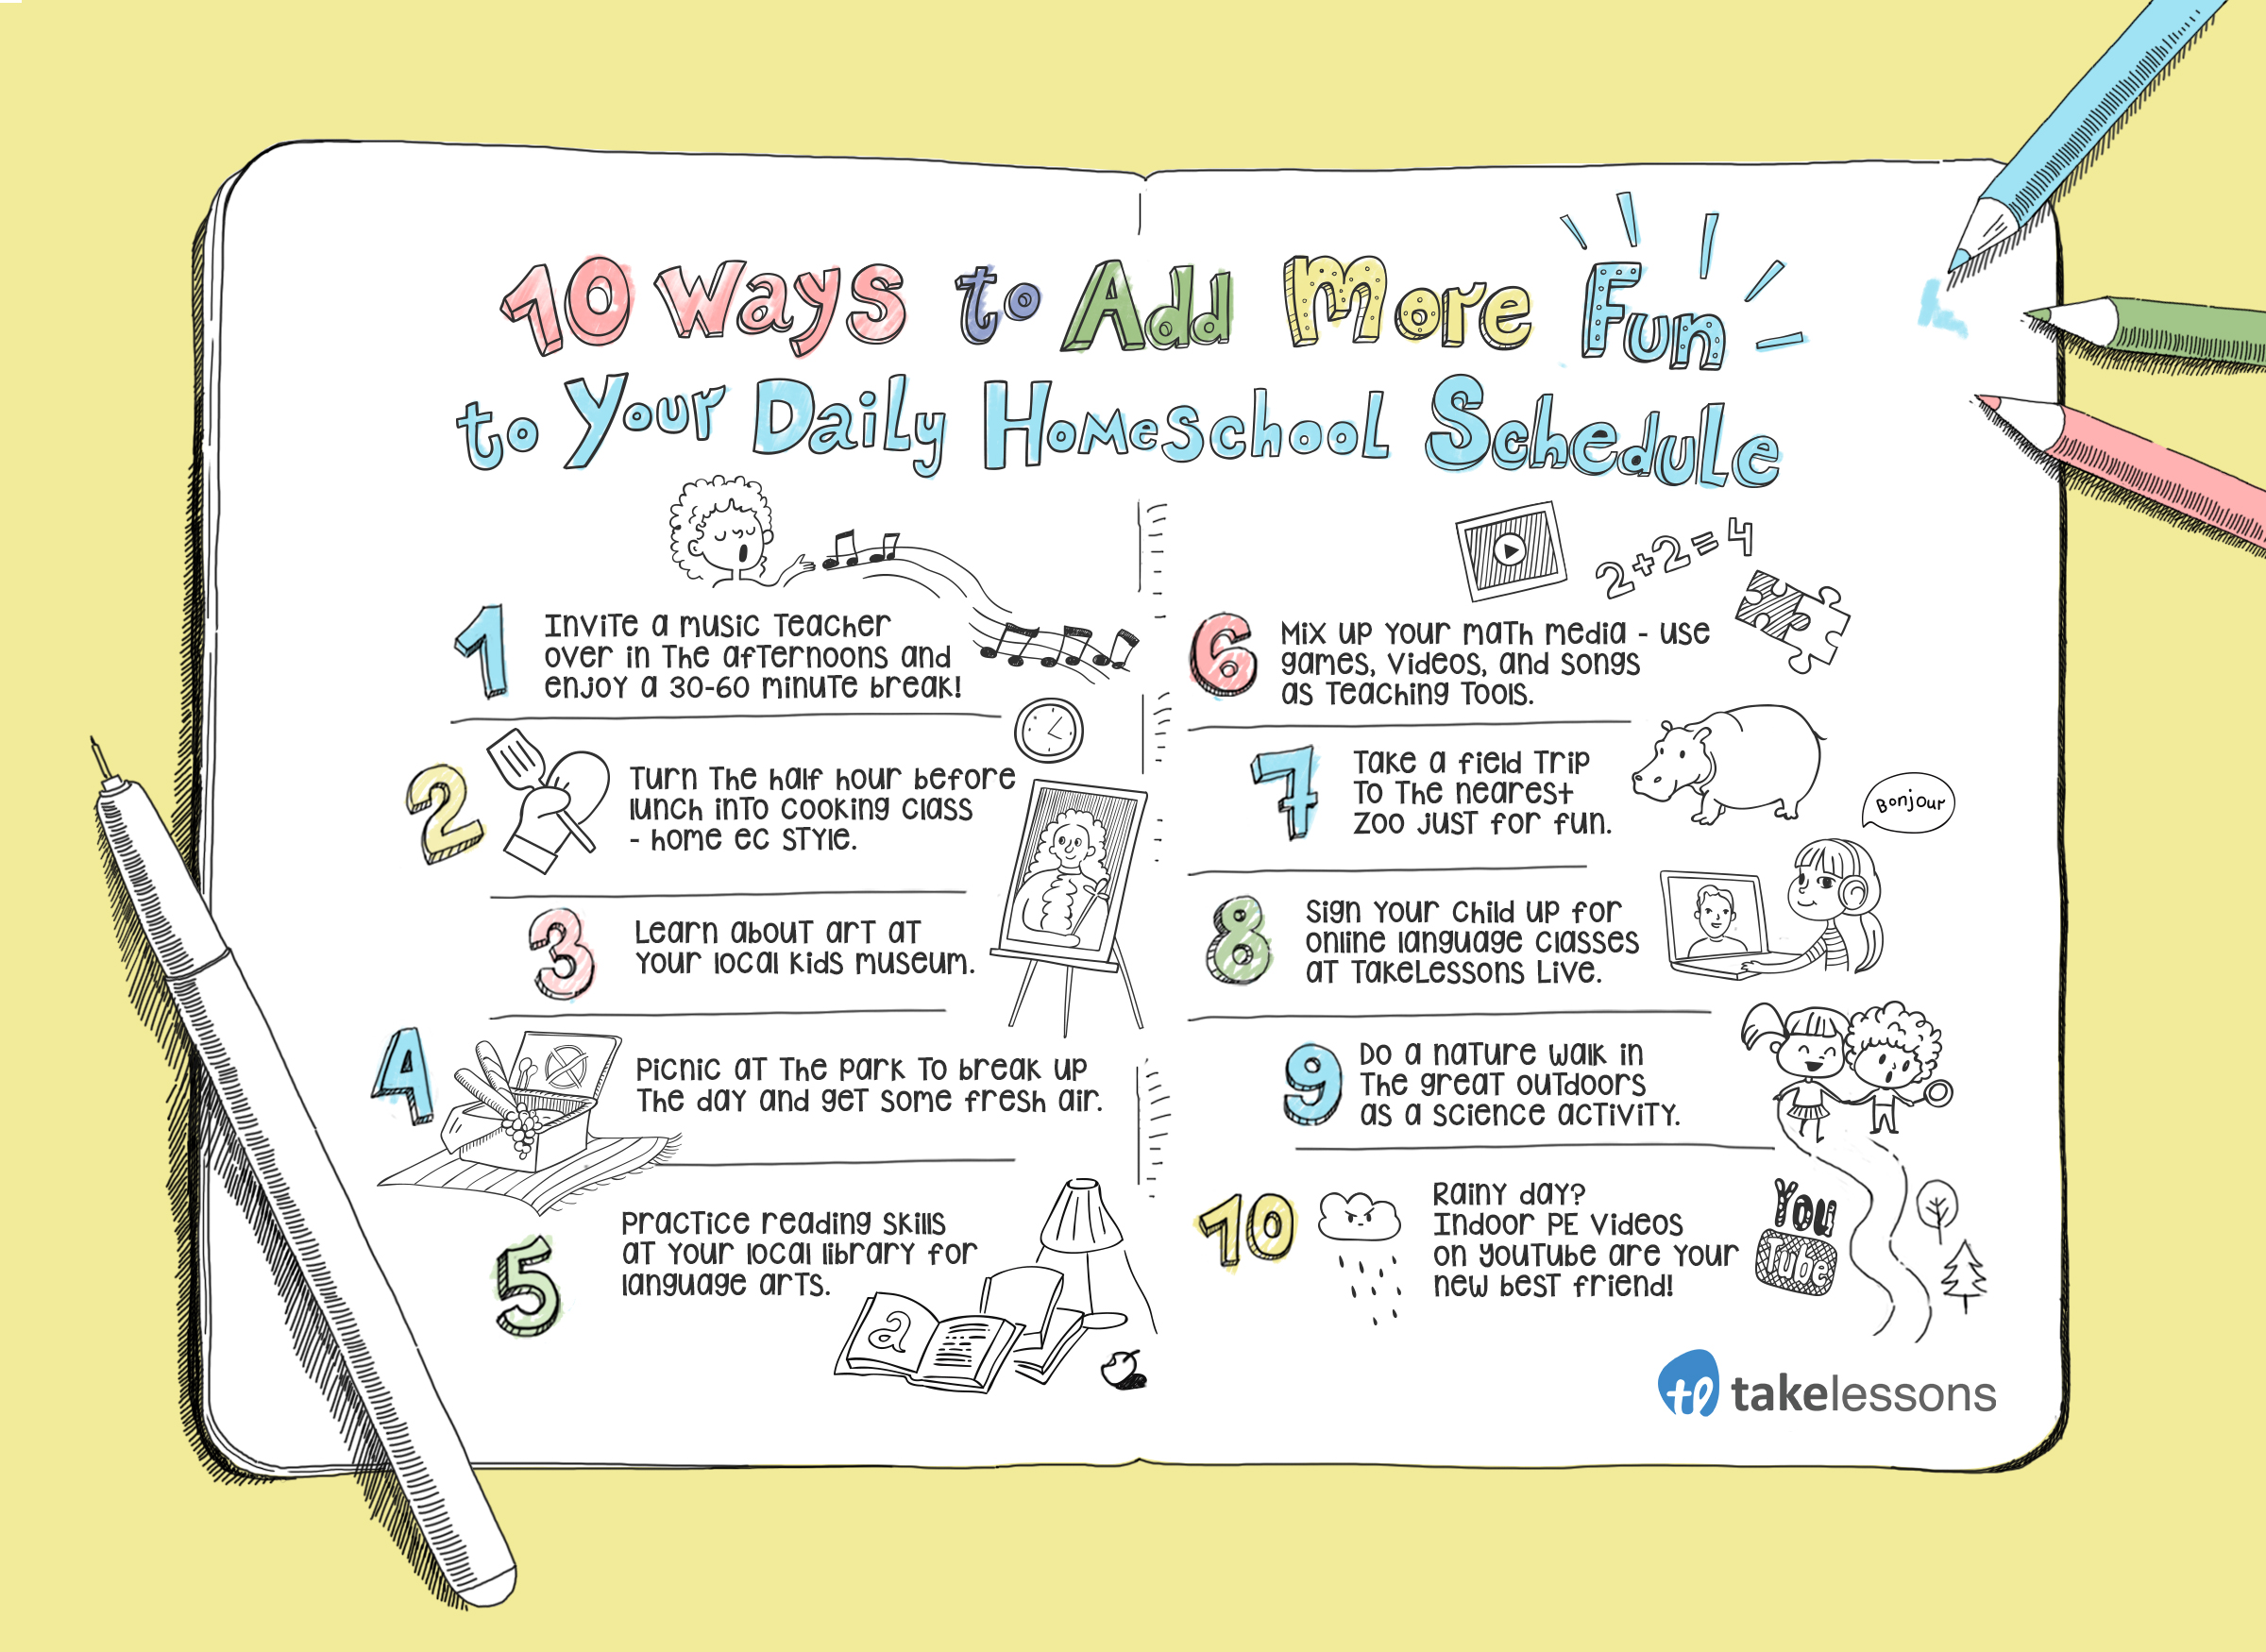 10 Ways to Add More Fun
to Your Daily Homeschool Schedule
1
Invite a music teacher
over in the afternoons and
enjoy a 30-60 minute break!
2
Turn the half hour before
lunch into cooking class
- home ec style.
3
Learn about art at
your local kids museum.
4
Picnic at the park to break up
the day and get some fresh air.
5
Practice reading skills
at your local library for
language arts.
a
2+2=4
6
Mix up your math media - use
games, videos, and songs
as teaching tools.
7
Take a field trip
to the nearest
zoo just for fun.
Bonjour
8
Sign your child up for
online language classes
at TakeLessons Live.
9
Do a nature walk in
the great outdoors
as a science activity.
10
Rainy day?
Indoor PE videos
on youtube are your
new best friend!
You
Tube
tl takelessons